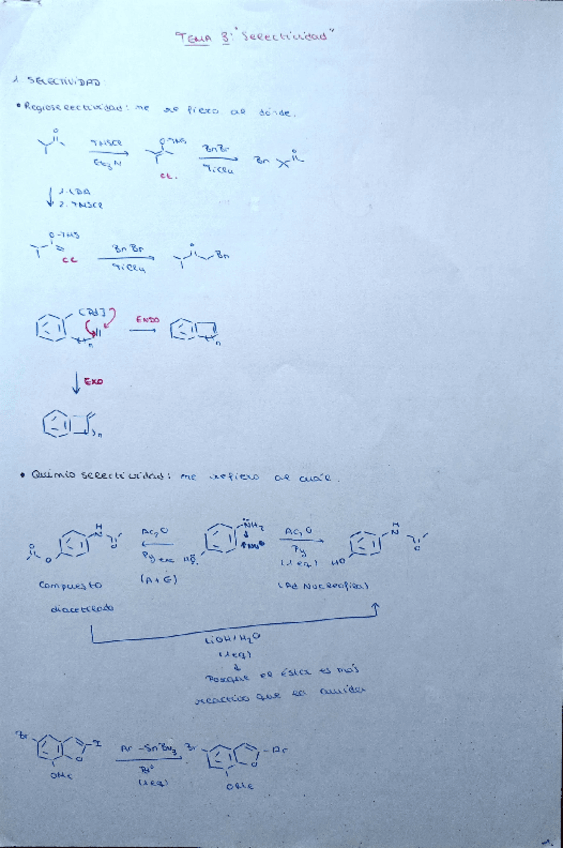 TEMA 8: "Selectividad"
1. SELECTIVIDAD
• Regioselectividad: me refiero al dónde.
O
TMSCl
Et3N
O-TMS
BnBr
TiCl4
Bn
O
1. LDA
2. TMSCl
O-TMS
CC
BnBr
TiCl4
O
Bn
[Pd]
n
ENDO
n
EXO
n
• Quimio selectividad: me refiero al cuál.
O
O
H
N
O
Ac2O
Py exc
(A+E)
NH2
HO
Ac2O
Py
(1 eq)
(Ad Nucleófila)
HO
H
N
O
Compuesto
diacetilado
LiOH/H2O
(1 eq)
Porque el éster es más
reactivo que la amida
Br
O
I
OMe
Ar-SnBu3
(1 eq)
Br
O
-Ar
OMe